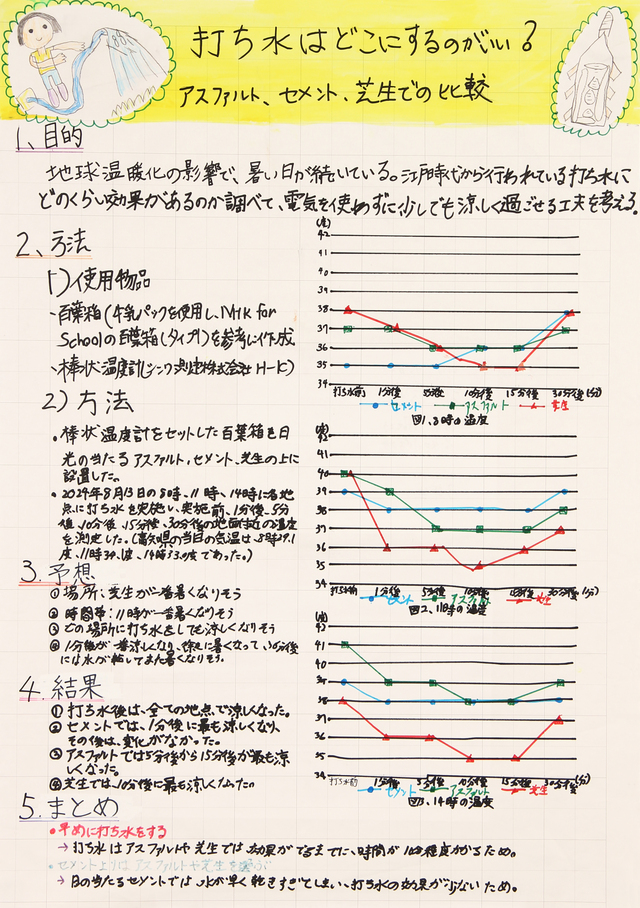 打ち水はどこにするのがいい？
アスファルト、セメント、芝生での比較
1、目的
地球温暖化の影響で、暑い日が続いている。江戸時代から行われている打ち水に
どのくらい効果があるのか調べて、電気を使わずに少しでも涼しく過ごせる工夫を考える。
2、方法
1)使用物品
・百葉箱(牛乳パックを使用し、NHK for
Schoolの百葉箱(タイプ1)を参考に作成
・棒状温度計(シンワ測定株式会社 H-1C)
2)方法
・棒状温度計をセットした百葉箱を日
光の当たるアスファルト、セメント、芝生の上に
設置した。
・2024年8月13日の8時、11時、14時に各地
点に打ち水を実施し、実施前、1分後、5分
後、10分後、15分後、30分後の地面付近の温度
を測定した。(高知県の当日の気温は、8時29.1
度、11時30. 度、14時33.0度であった。)
3.予想
① 場所：芝生が一番暑くなりそう
② 時間帯：11時が一番暑くなりそう
③ どの場所に打ち水をしても涼しくなりそう
④ 1分後が一番涼しくなり、徐々に暑くなって、30分後
には水が乾いてまた暑くなりそう。
4.結果
① 打ち水後は、全ての地点で涼しくなった。
② セメントでは、1分後に最も涼しくなり、
その後は、変化がなかった。
③ アスファルトでは5分後から15分後が最も涼
しくなった。
④ 芝生では、10分後に最も涼しくなった。
5.まとめ
・早めに打ち水をする
→打ち水はアスファルトや芝生では効果がでるまでに、時間が10分程度かかるため。
・セメントよりはアスファルトや芝生を選ぶ
→日の当たるセメントでは水が早く乾きすぎてしまい、打ち水の効果が少ないため。
(度)
42
41
40
39
38
37
36
35
34
打ち水前 1分後 5分後 10分後 15分後 30分後 (分)
セメント アスファルト 芝生
図1、8時の温度
42
41
40
39
38
37
36
35
34
打ち水前 1分後 5分後 10分後 15分後 30分後 (分)
セメント アスファルト 芝生
図2、11時の温度
(度)
42
41
40
39
38
37
36
35
34
打ち水前 1分後 5分後 10分後 15分後 30分後 (分)
セメント アスファルト 芝生
図3、14時の温度